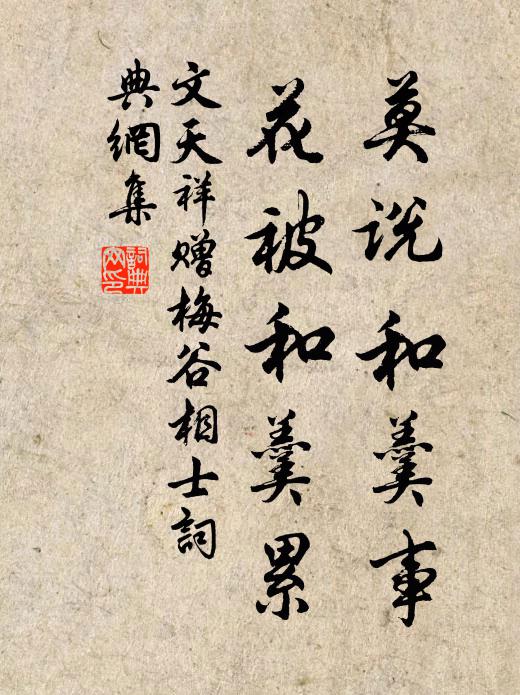 莫说和羹事
花被和羹累
文天祥赠梅谷相士詞
典網集
詞典
网印